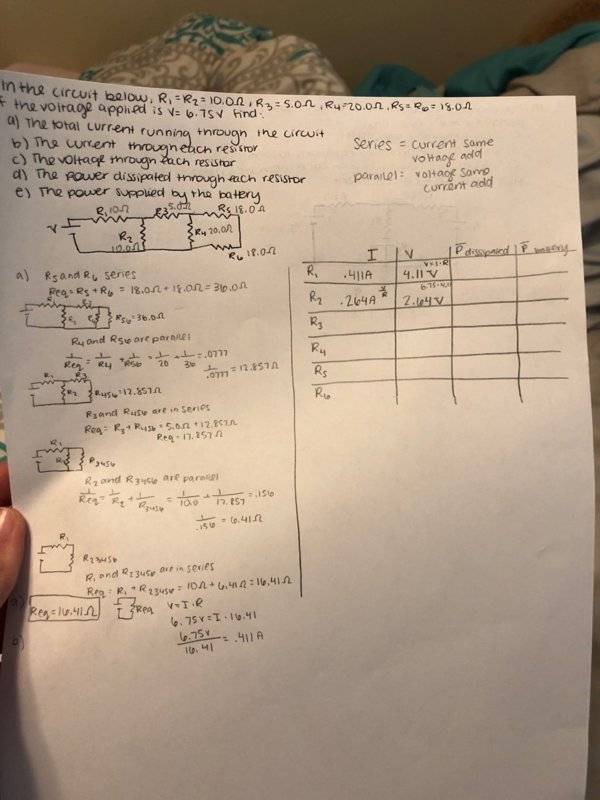 In the circuit below, R1=R2=10.0Ω, R3=5.0Ω, R4=20.0Ω, R5=R6=18.0Ω
If the voltage applied is V=6.75V find:
a) The total current running through the circuit
b) The current through each resistor
c) The voltage through each resistor
d) The power dissipated through each resistor
e) The power supplied by the battery
Series = current same
voltage add
parallel: voltage same
current add
R1 10Ω R3 5.0Ω R5 18.0Ω
V R2 10.0Ω R4 20.0Ω
R6 18.0Ω
a) R5 and R6 series
Req = R5 + R6 = 18.0Ω + 18.0Ω = 36.0Ω
R56=36.0Ω
R4 and R56 are parallel
1/Req = 1/R4 + 1/R56 = 1/20 + 1/36 = .0777
1/.0777 = 12.857Ω
R1 R3
R2 R456=12.857Ω
R3 and R456 are in series
Req = R3 + R456 = 5.0Ω + 12.857Ω
Req = 17.857Ω
R1
R3456
R2 and R3456 are parallel
1/Req = 1/R2 + 1/R3456 = 1/10.0 + 1/17.857 = .156
1/.156 = 6.41Ω
R1
R23456
R1 and R23456 are in series
Req = R1 + R23456 = 10Ω + 6.41Ω = 16.41Ω
a) Req = 16.41Ω Req V=I·R
6.75V = I·16.41
b) 6.75V/16.41 = .411A
I V P dissipated P battery
V=I·R
R1 .411A 4.11V
R2 .264A V/R 2.64V
R3
R4
R5
R6